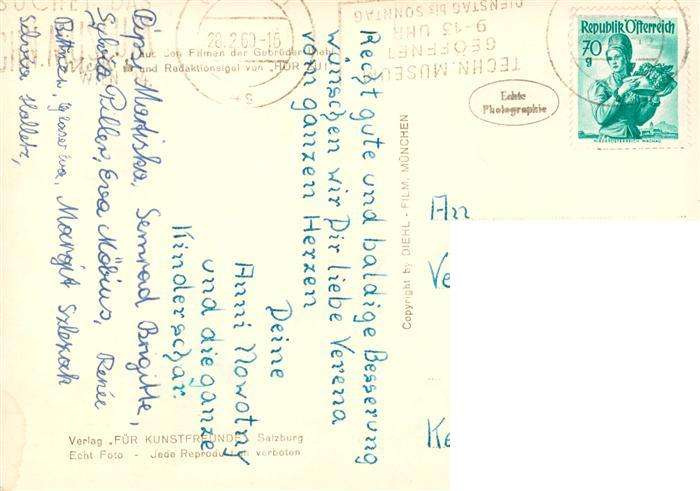 BESUCHET DAS
TECHN. MUSEUM
WIEN
28.2.60-15
TECHN. MUSEUM
GEÖFFNET
9-13 UHR
DIENSTAG BIS SONNTAG
Republik Österreich
70
g
NIEDERÖSTERREICH WACHAU
Echte
Photographie
aus den Filmen der Gebrüder Diehl
und Redaktionsigel von „HÖR ZU"
Copyright by DIEHL - FILM, MÜNCHEN
Recht gute und baldige Besserung
wünschen wir Dir liebe Verena
von ganzen Herzen
Deine
Anni Nowotny
und die ganze
Kinderschar.
Semrad Brigitte,
Sylvia Piller, Eva Möbius, Renée
Margit Szlezak
Silvia Halletz,
An
Ve
Ke
Verlag „FÜR KUNSTFREUNDE", Salzburg
Echt Foto - Jede Reproduktion verboten